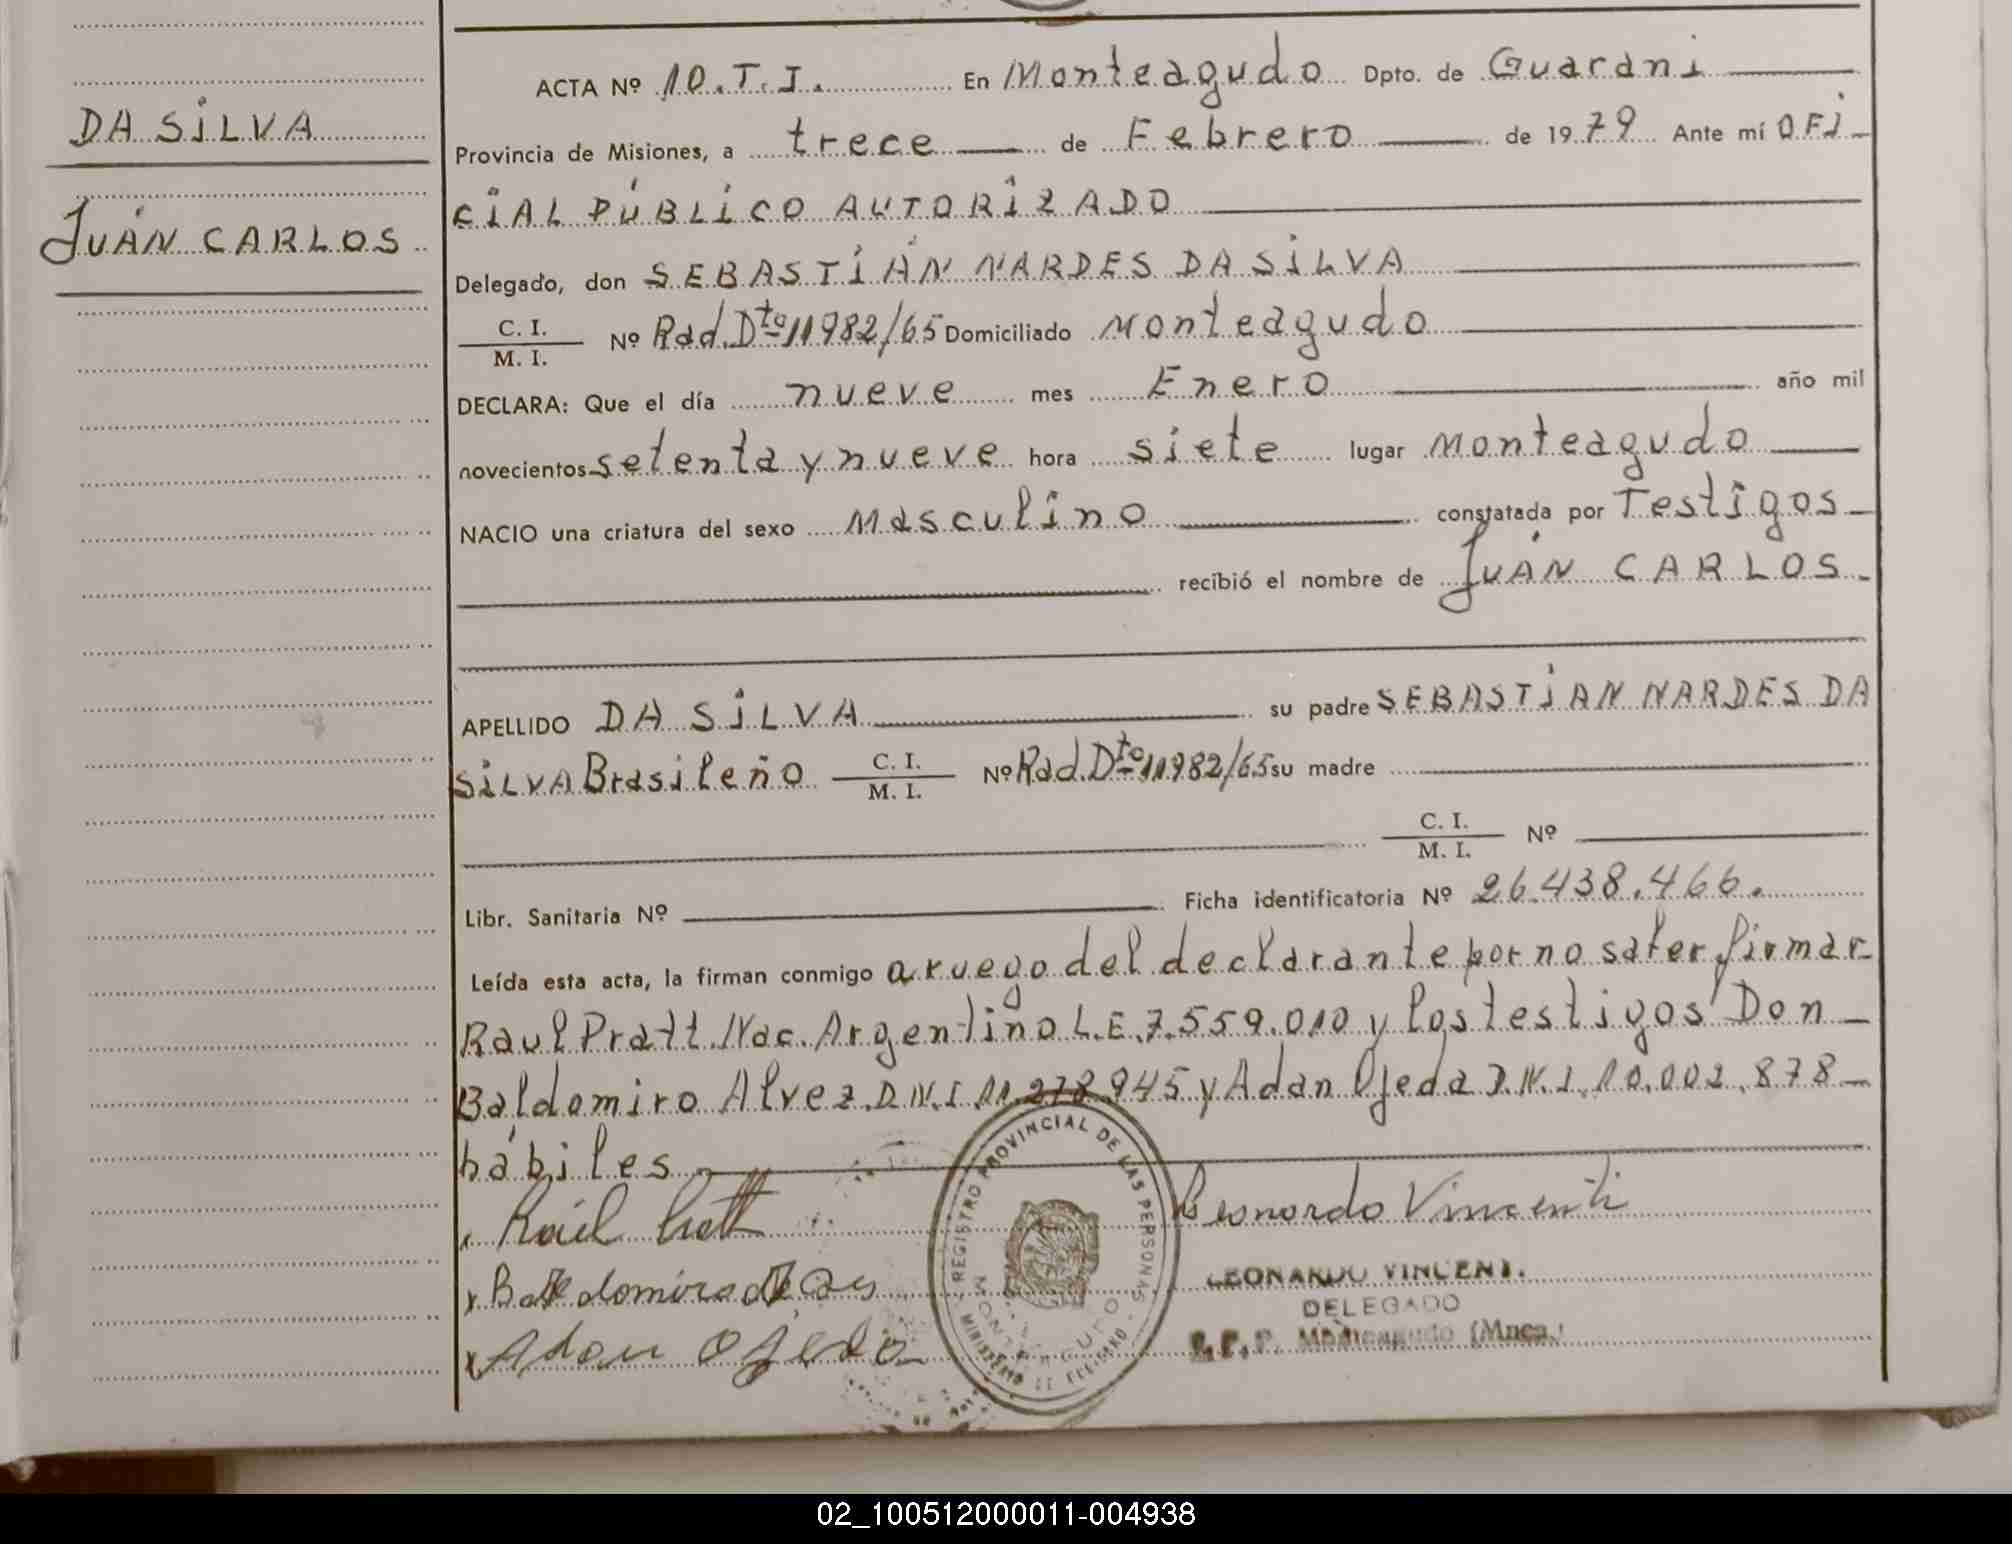 DA SILVA
JUAN CARLOS
ACTA Nº 10.T.I. En Monteagudo Dpto. de Guarani
Provincia de Misiones, a trece de Febrero de 1979 Ante mí OFI-
CIAL PÚBLICO AUTORIZADO
Delegado, don SEBASTIÁN NARDES DA SILVA
C. I.
M. I. Nº Rad. Dto 11982/65 Domiciliado Monteagudo
DECLARA: Que el día nueve mes Enero año mil
novecientos setenta y nueve hora siete lugar Monteagudo
NACIO una criatura del sexo Masculino constatada por Testigos
recibió el nombre de JUAN CARLOS.
APELLIDO DA SILVA su padre SEBASTIAN NARDES DA
SILVA Brasileño C. I. / M. I. Nº Rad. Dto 11982/65 su madre
C. I. / M. I. Nº
Libr. Sanitaria Nº Ficha identificatoria Nº 26.438.466.
Leída esta acta, la firman conmigo a ruego del declarante por no saber firmar
Raul Pratt. Nac. Argentino L.E. 7.559.010 y los testigos Don
Baldomiro Alvez D.N.I. 11.278.945 y Adan Ojeda D.N.I. 10.002.878
hábiles
Raúl Pratt
Leonardo Vincenti
Adan Ojeda
REGISTRO PROVINCIAL DE LAS PERSONAS
MONTEAGUDO
MINISTERIO DE GOBIERNO
LEONARDO VINCENTI
DELEGADO
R. P. P. Monteagudo (Mnes.)
02_100512000011-004938